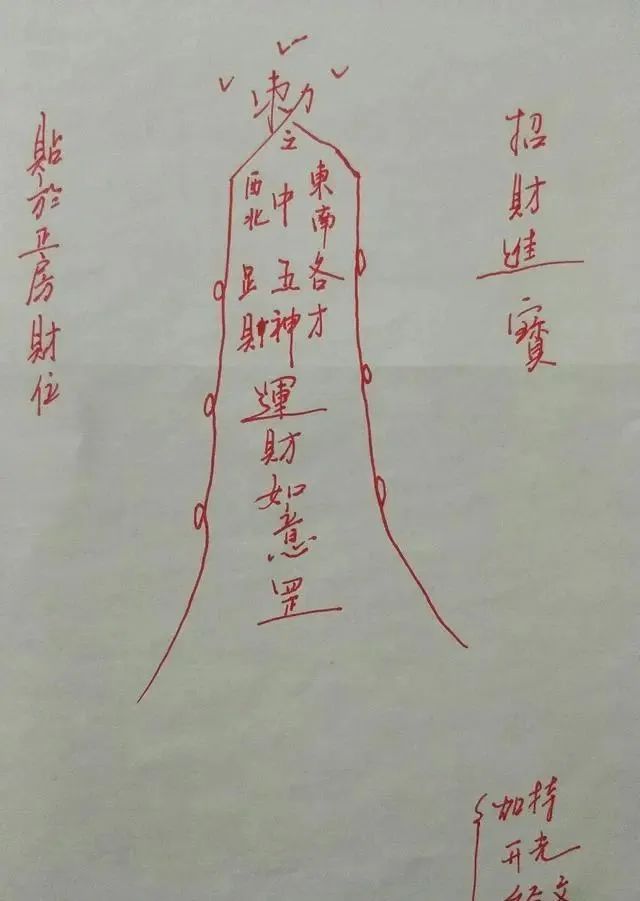 招財進寶
勅
之
東南各才
中五神
西北財
運財如意罡
貼於卫房財位
加持
开光